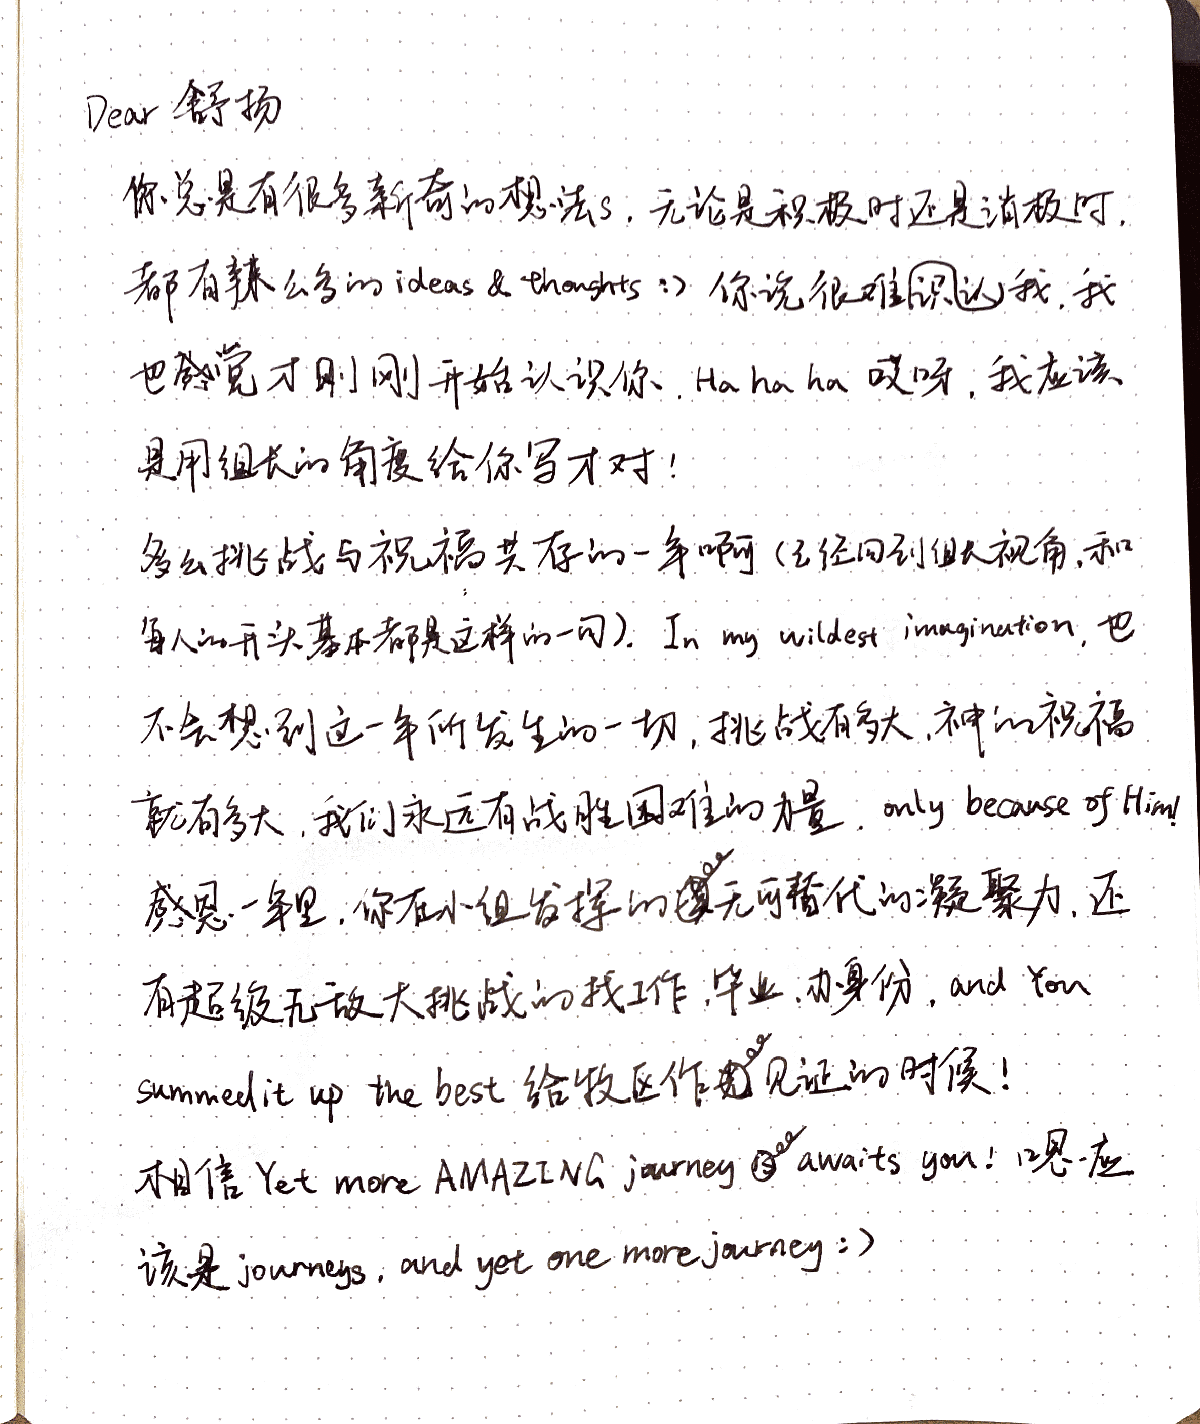 Dear 舒扬
你总是有很多新奇的想法s，无论是积极时还是消极时，
都有辣么多的ideas & thoughts :) 你说很难识认我，我
也感觉才刚刚开始认识你，Ha ha ha 哎呀，我应该
是用组长的角度给你写才对！
多么挑战与祝福共存的一年啊（已经回到组长视角，和
每人的开头基本都是这样的一句）. In my wildest imagination, 也
不会想到这一年所发生的一切，挑战有多大，神的祝福
就有多大，我们永远有战胜困难的力量，only because of Him!
感恩一年里，你在小组发挥的无可替代的凝聚力，还
有超级无敌大挑战的找工作，毕业，办身份，and You
summed it up the best 给牧区作见证的时候！
相信 Yet more AMAZING journey awaits you! 嗯应
该是 journeys, and yet one more journey :)